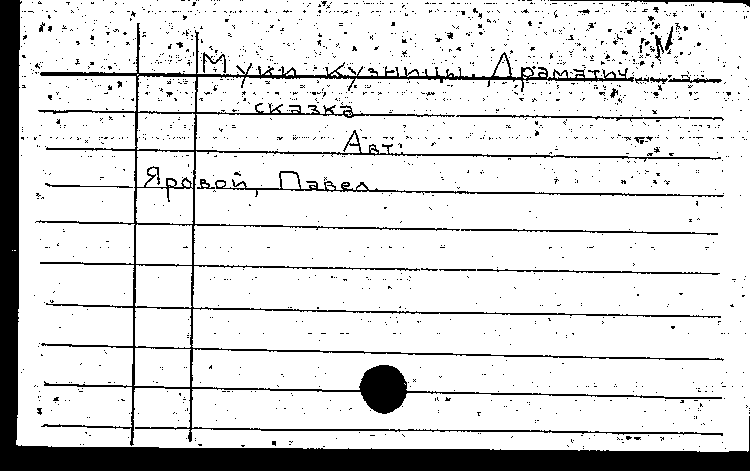 Муки кузницы. Драматич.
сказка
Авт.:
Яровой, Павел.